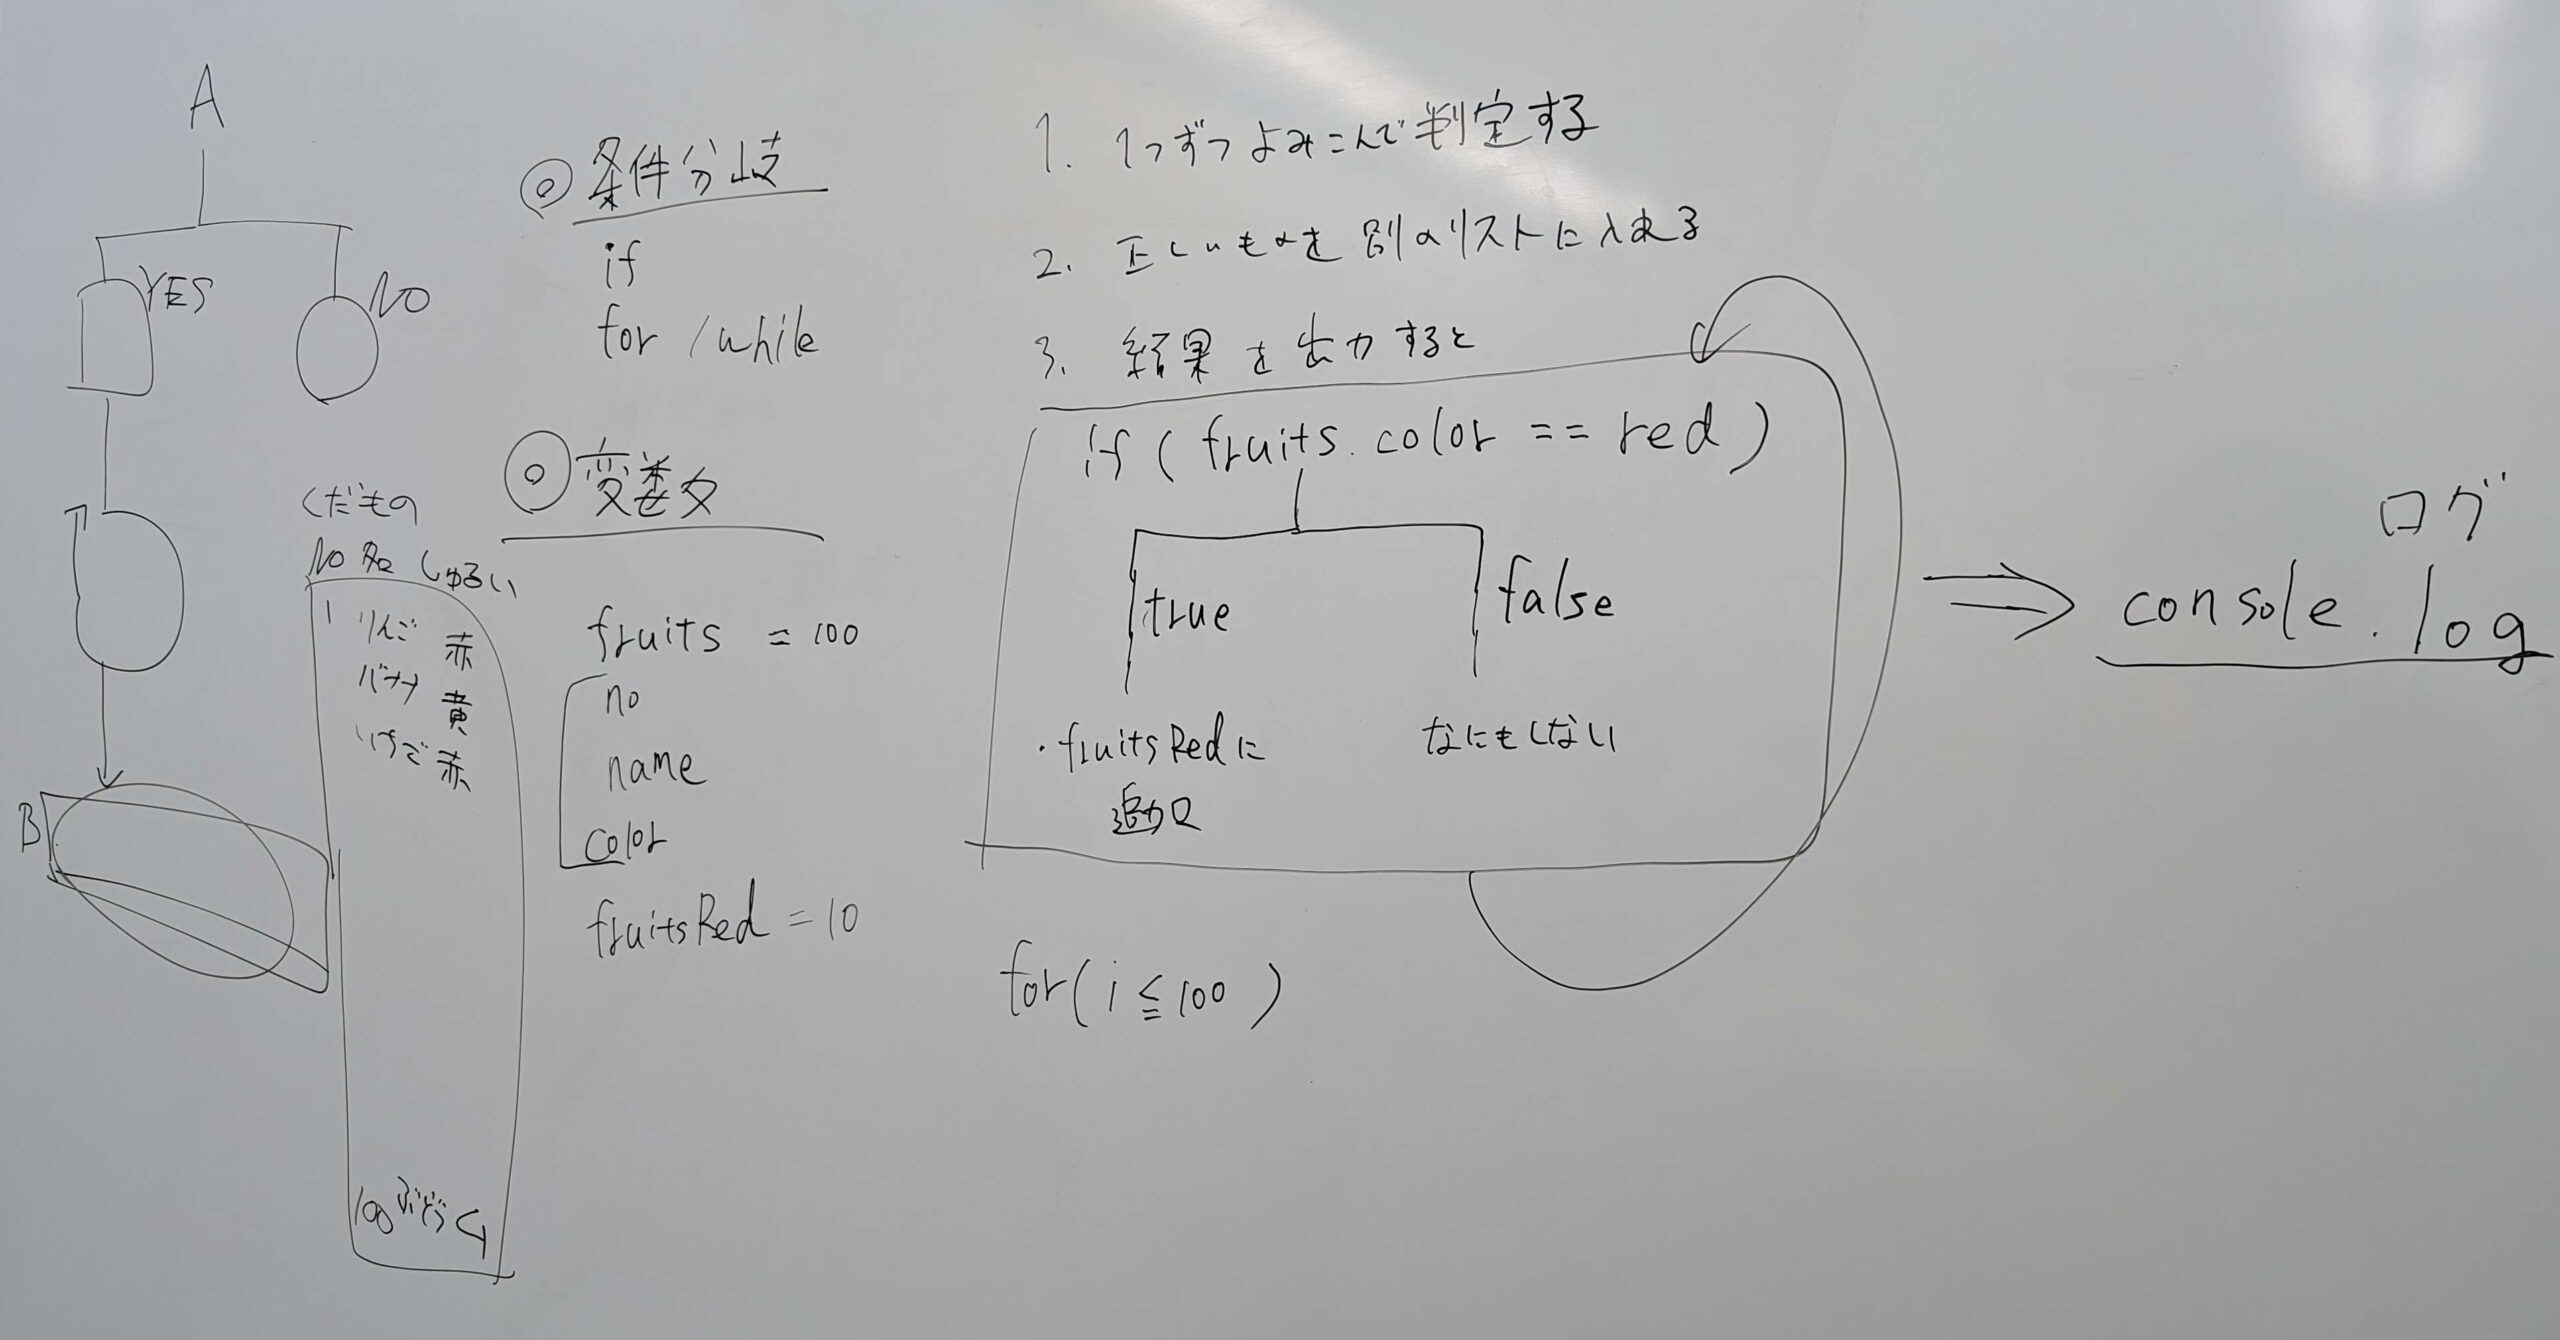 A
YES
NO
B
◎条件分岐
if
for / while
くだもの
No 名 しゅるい
1 りんご 赤
バナナ 黄
いちご 赤
100 ぶどう
◎変数
fruits = 100
no
name
color
fruitsRed = 10
1. 1つずつよみこんで判定する
2. 正しいものを別のリストに入れる
3. 結果を出力すると
if ( fruits.color == red )
true
false
・fruitsRedに
追加
なにもしない
for( i ≦ 100 )
ログ
console.log